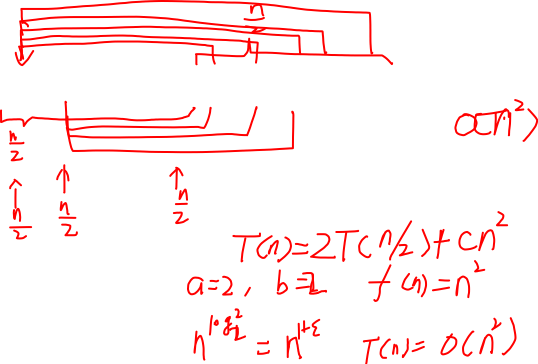 n/2
O(n²)
n/2
n/2 n/2 n/2
T(n)=2T(n/2)+cn²
a=2, b=2 f(n)=n²
n^{log_2 2} = n^{1+ε} T(n) = O(n²)